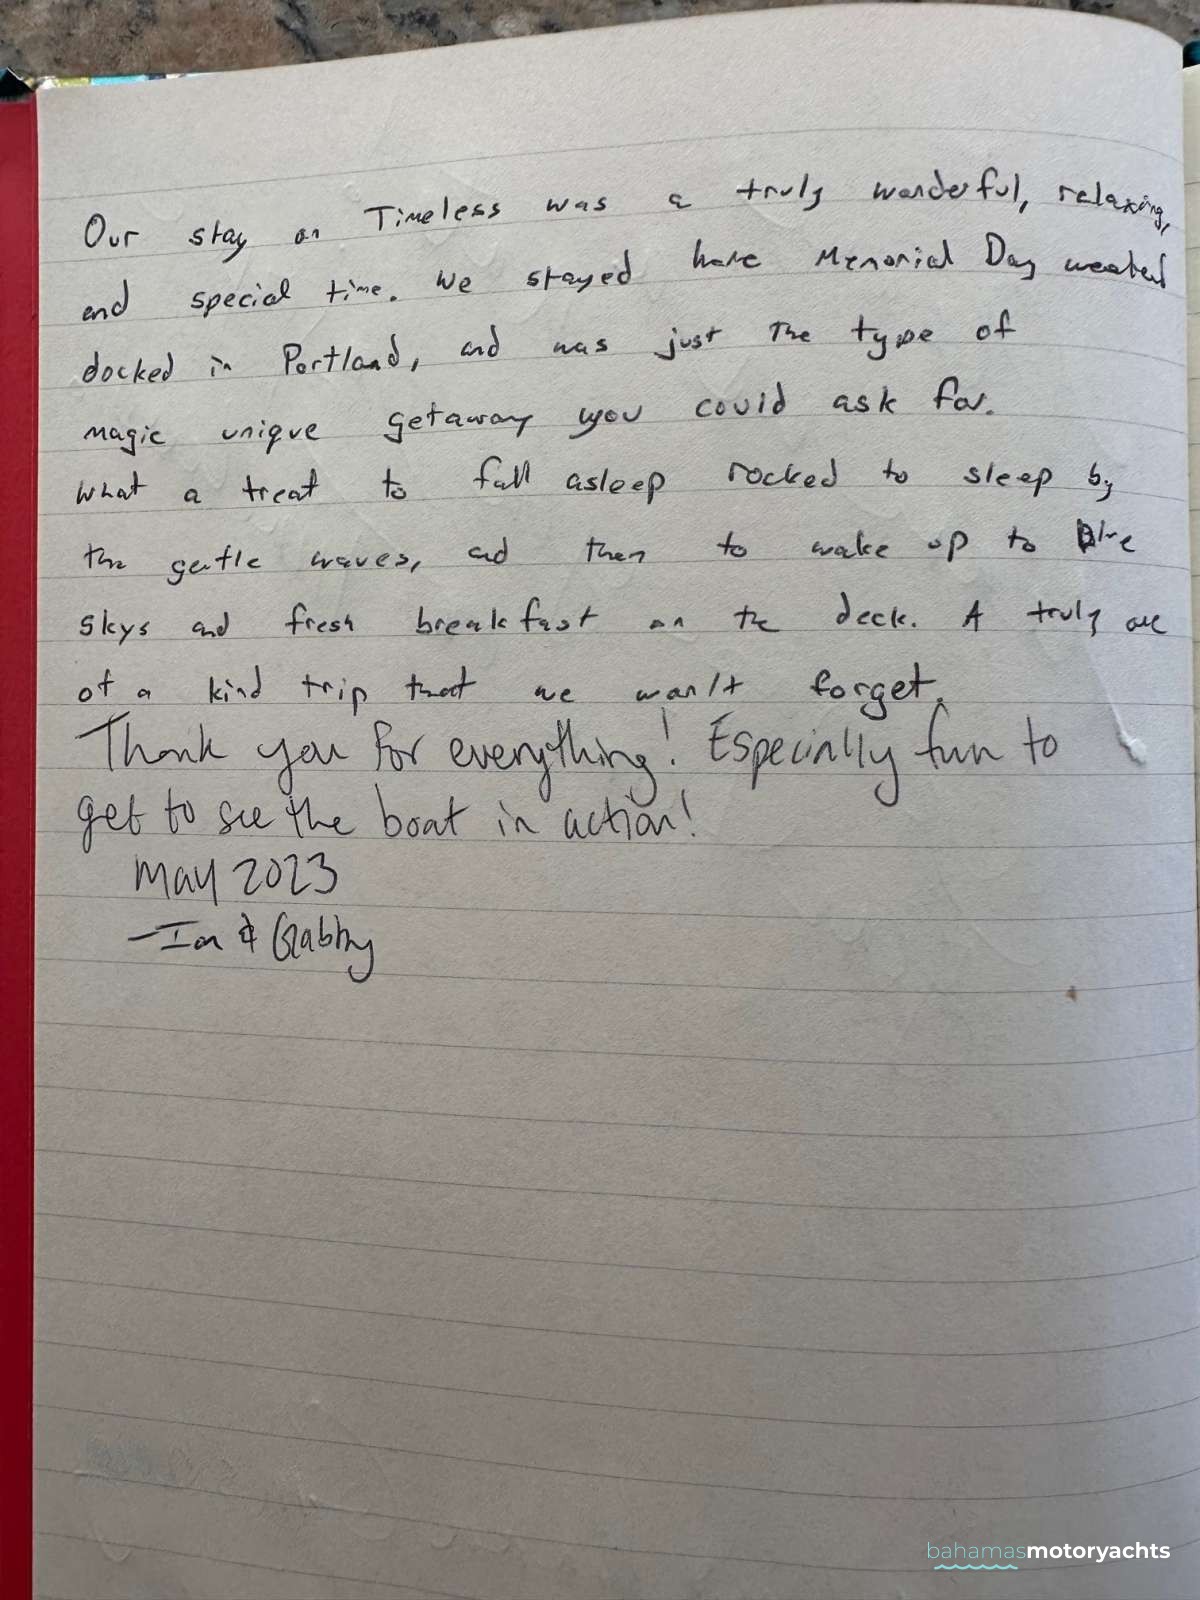 Our stay on Timeless was a truly wonderful, relaxing,
and special time. We stayed here Memorial Day weekend
docked in Portland, and was just the type of
magic unique getaway you could ask for.
What a treat to fall asleep rocked to sleep by
the gentle waves, and then to wake up to blue
skys and fresh breakfast on the deck. A truly one
of a kind trip that we won't forget.
Thank you for everything! Especially fun to
get to see the boat in action!
May 2023
- Ian & Gabby
bahamasmotoryachts